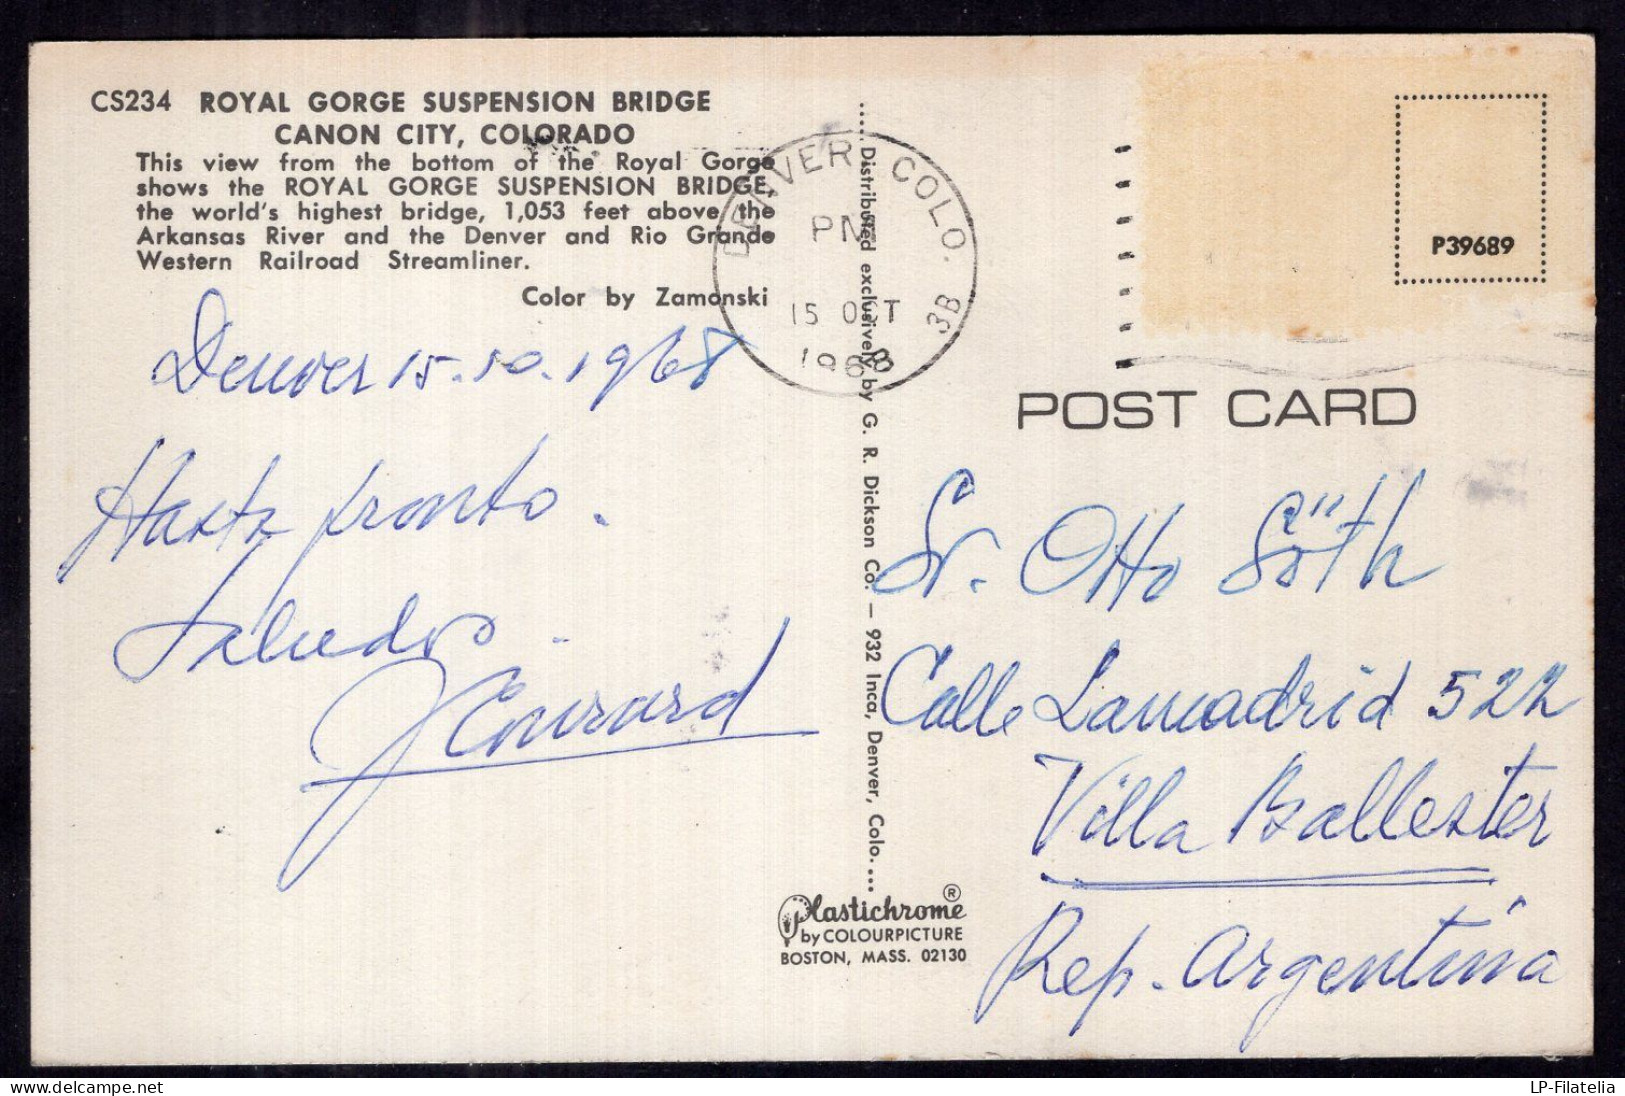 CS234 ROYAL GORGE SUSPENSION BRIDGE
CANON CITY, COLORADO
This view from the bottom of the Royal Gorge
shows the ROYAL GORGE SUSPENSION BRIDGE,
the world's highest bridge, 1,053 feet above the
Arkansas River and the Denver and Rio Grande
Western Railroad Streamliner.
Color by Zamonski
Denver 15.10.1968
Hasta pronto.
Saludos.
J Conrard
DENVER COLO.
PM
15 OCT
1968
3B
Distributed exclusively by G. R. Dickson Co. – 932 Inca, Denver, Colo.
Plastichrome®
by COLOURPICTURE
BOSTON, MASS. 02130
P39689
POST CARD
Sr. Otto Söth
Calle Lamadrid 522
Villa Ballester
Rep. Argentina
LP-Filatelia